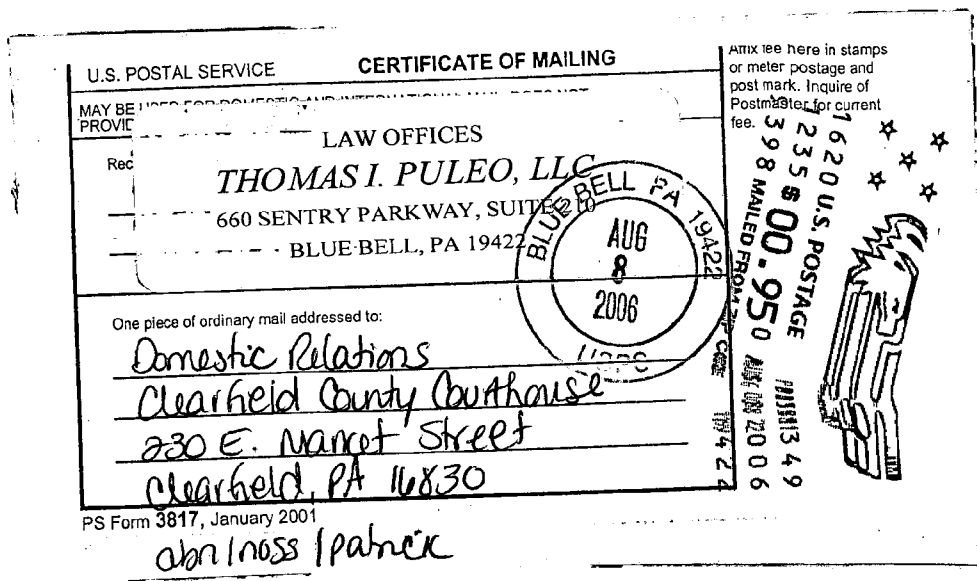 U.S. POSTAL SERVICE CERTIFICATE OF MAILING
MAY BE USED FOR DOMESTIC AND INTERNATIONAL MAIL, DOES NOT
PROVID
Rec
LAW OFFICES
THOMAS I. PULEO, LLC
660 SENTRY PARKWAY, SUITE 210
BLUE BELL, PA 19422
Affix fee here in stamps
or meter postage and
post mark. Inquire of
Postmaster for current
fee.
BLUE BELL PA 19422
AUG
8
2006
USPS
1620 U.S. POSTAGE
$00.950
MAILED FROM ZIP CODE
One piece of ordinary mail addressed to:
Domestic Relations
Clearfield County Courthouse
230 E. Market Street
Clearfield, PA 16830
PS Form 3817, January 2001